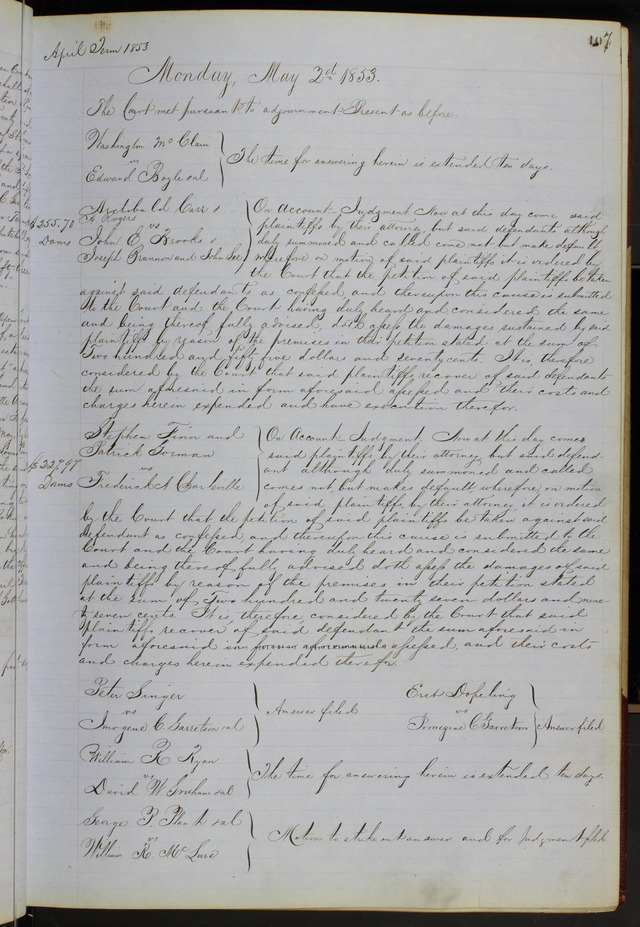 April Term 1853
107
Monday, May 2d 1853.
The Court met pursuant to adjournment. Present as before.
Washington McClain
vs
Edward Bogle et al
The time for answering herein is extended ten days.
$255.70
Dams
Archibald Carr &
Rogers
vs
John E Brooks &
Joseph Brannon and John Lee
On Account. Judgment Now at this day come said
plaintiffs by their attorney but said defendants although
duly summoned and called come not but make default
wherefore on motion of said plaintiffs it is ordered by
the Court that the petition of said plaintiffs be taken
against said defendants as confessed and thereupon this cause is submitted
to the Court and the Court having duly heard and considered the same
and being thereof fully advised, doth assess the damages sustained by said
plaintiffs by reason of the premises in their petition stated at the sum of
Two hundred and fifty five dollars and seventy cents. It is, therefore
considered by the Court, that said plaintiffs recover of said defendants
the sum aforesaid in form aforesaid assessed and their costs and
charges herein expended and have execution therefor.
$227.97
Dams
Stephen Finn and
Patrick Gorman
vs
Frederick A Charleville
On Account. Judgment, Now at this day comes
said plaintiffs by their attorney but said defend-
ant although duly summoned and called
comes not, but makes default, wherefore on motion
of said plaintiffs, by their attorney it is ordered
by the Court that the petition of said plaintiffs be taken against said
defendant as confessed and thereupon this cause is submitted to the
Court and the Court having duly heard and considered the same
and being thereof fully advised doth assess the damages of said
plaintiffs by reason of the premises in their petition stated
at the sum of Two hundred and twenty seven dollars and nine-
ty seven cents. It is, therefore, considered by the Court that said
plaintiffs recover of said defendant the sum aforesaid in
form aforesaid assessed, and their costs
and charges herein expended therefor.
Peter Singer
vs
Imogene C Garretson et al
Answer filed
vs
C Garretson
Answer filed
William R Ryan
vs
David W Graham et al
The time for answering herein is extended ten days.
George P Plant et al
vs
William R McLure
Motion to strike out answer and for Judgment filed